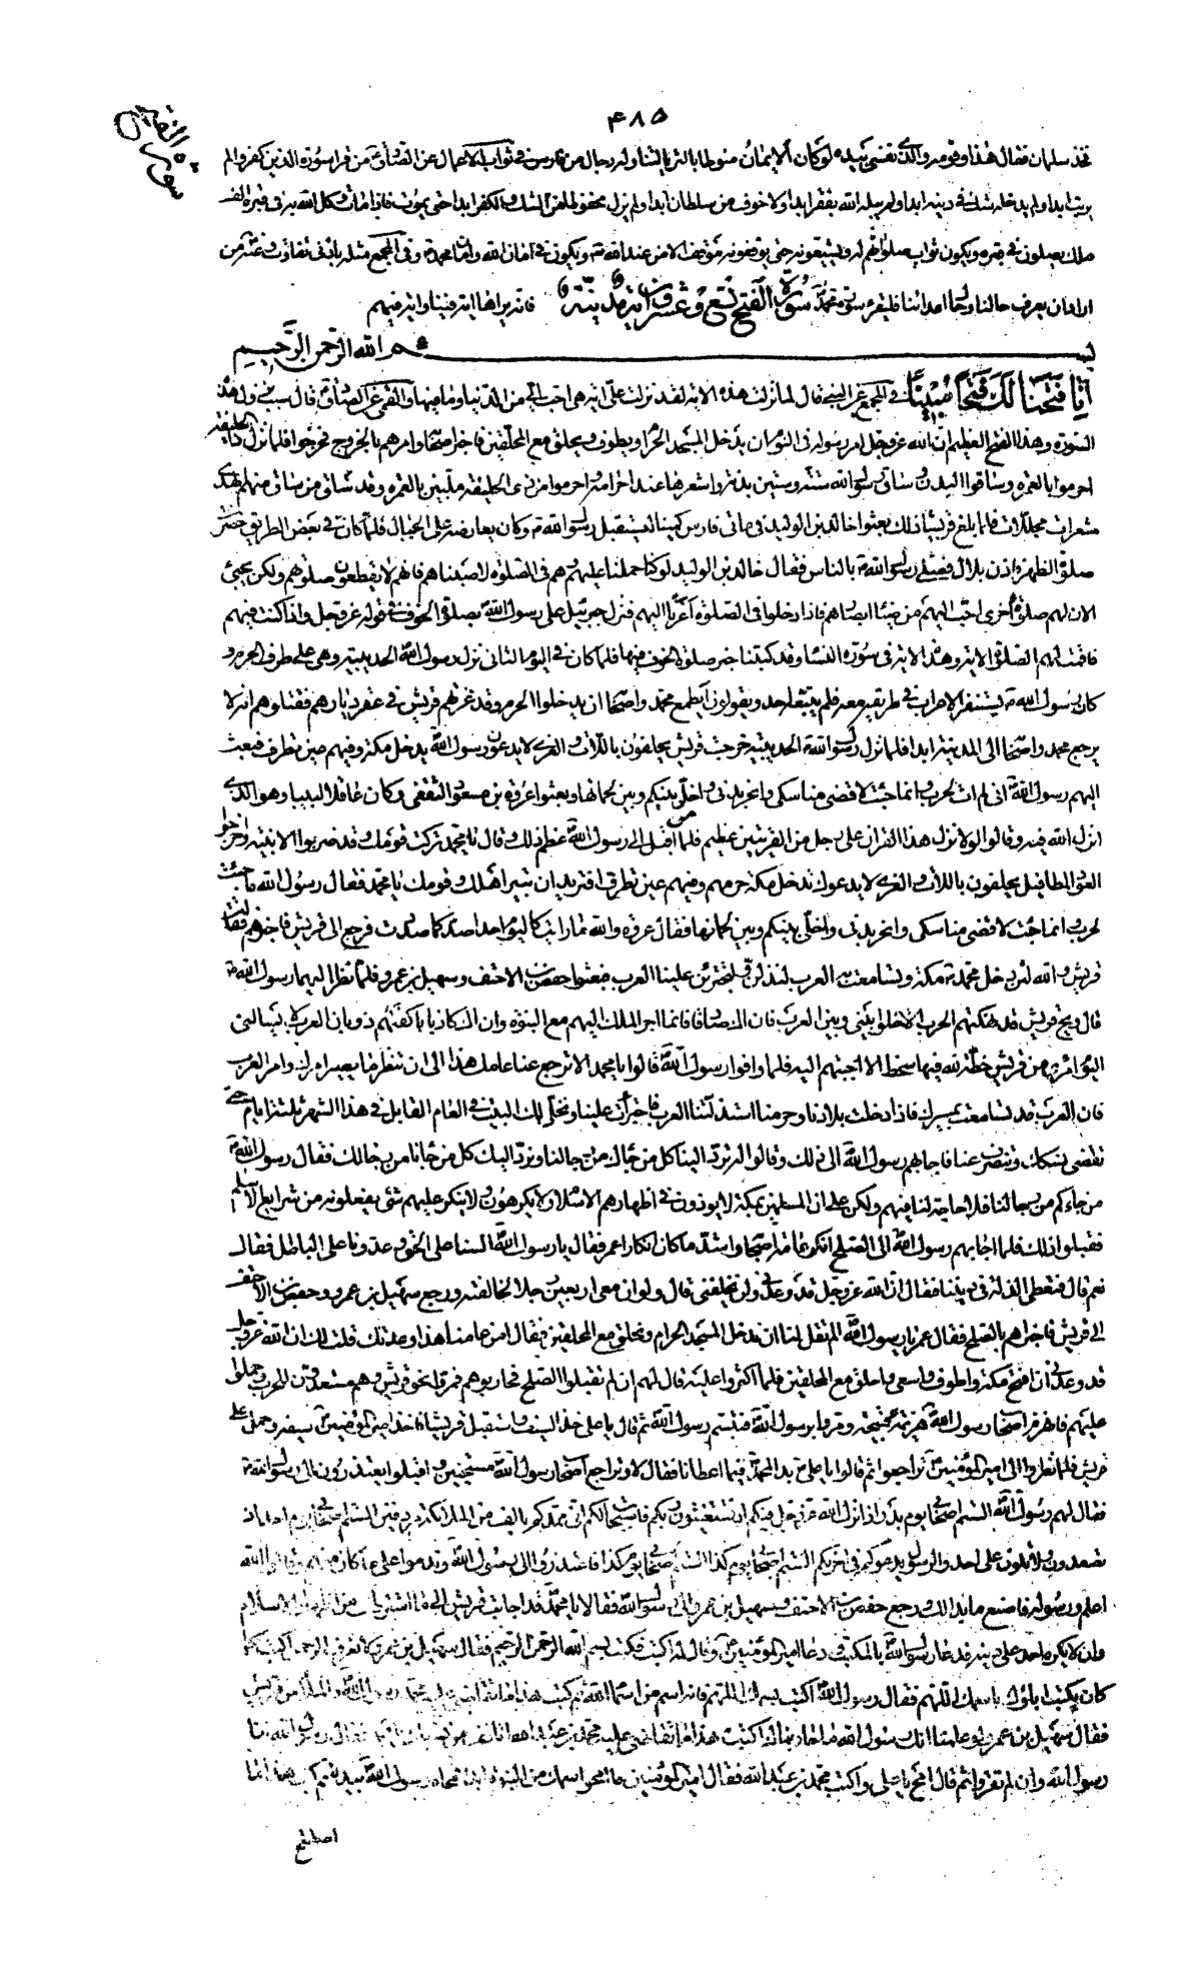 ۴۸۵
فخذ سلمان فقال هذا وقومه والذی نفسی بیده لو کان الایمان منوطا بالثریا لتناوله رجال من فارس فی ثواب الاعمال عن الصادق من قرا سورة الذین کفروا لم
یرتب ابدا ولم یدخله شک فی دینه ابدا ولم یبتله الله بفقر ابدا ولا خوف من سلطان ابدا ولم یزل محفوظا من الشک والکفر ابدا حتی یموت فاذا مات وکل الله به فی قبره الف
ملک یصلون فی قبره ویکون ثواب صلواتهم له ویشیعونه حتی یوقفونه موقف الامن عند الله ویکون فی امان الله وامان محمد وفی المجمع مثله
اراد ان یعرف حالنا وحال اعدائنا فلیقرء سورة محمد سورة الفتح تسع وعشرون ایة مدنیة فانه یراها ایة فینا وایة فیهم
بسم الله الرحمن الرحیم
انا فتحنا لک فتحا مبینا فی المجمع عن النبی قال لما نزلت هذه الایة لقد نزلت علی ایة هی احب الی من الدنیا وما فیها والقمی عن الصادق قال سبب نزول هذه
السورة وهذا الفتح العظیم ان الله عز وجل امر رسوله فی النوم ان یدخل المسجد الحرام ویطوف ویحلق مع المحلقین فاخبر اصحابه وامرهم بالخروج فخرجوا فلما نزل ذا الحلیفة
احرموا بالعمرة وساقوا البدن وساق رسول الله ستة وستین بدنة واشعرها عند احرامه واحرموا من ذی الحلیفة ملبین بالعمرة وقد ساق من ساق منهم الهدی
مشعرات مجللات فلما بلغ قریشا ذلک بعثوا خالد بن الولید فی مأتی فارس کمینا لیستقبل رسول الله وکان یعارضه علی الجبال فلما کان فی بعض الطریق حضرت
صلوة الظهر واذن بلال فصلی رسول الله بالناس فقال خالد بن الولید لو کنا حملنا علیهم وهم فی الصلوة لاصبناهم فانهم لا یقطعون صلوتهم ولکن یجیئ
الان لهم صلوة اخری احب الیهم من ضیاء ابصارهم فاذا دخلوا فی الصلوة اغرنا الیهم فنزل جبرئیل علی رسول الله بصلوة الخوف فی قوله عز وجل واذا کنت فیهم
فاقمت لهم الصلوة الایة وهذه الایة فی سورة النساء وقد کتبنا خبر صلوة الخوف فیها فلما کان فی الیوم الثانی نزل رسول الله الحدیبیة وهی علی طرف الحرم و
کان رسول الله یستنفر الاعراب فی طریقه معه فلم یتبعه احد ویقولون ایطمع محمد واصحابه ان یدخلوا الحرم وقد غزتهم قریش فی عقر دیارهم فقتلوهم انه لا
یرجع محمد واصحابه الی المدینة ابدا فلما نزل رسول الله الحدیبیة خرجت قریش یحلفون باللات والعزی لا یدعون رسول الله یدخل مکة وفیهم عین تطرف فبعث
الیهم رسول الله انی لم ات لحرب وانما جئت لاقضی مناسکی وانحر بدنی واخلی بینکم وبین لحمانها وبعثوا عروة بن مسعود الثقفی وکان عاقلا لبیبا وهو الذی
انزل الله فیه وقالوا لولا نزل هذا القران علی رجل من القریتین عظیم فلما اقبل الی رسول الله عظم ذلک وقال یا محمد ترکت قومک وقد ضربوا الابنیة واخرجوا
العوذ المطافیل یحلفون باللات والعزی لا یدعوک تدخل مکة حرمهم وفیهم عین تطرف افترید ان تبیر اهلک وقومک یا محمد فقال رسول الله ما جئت
لحرب وانما جئت لاقضی مناسکی وانحر بدنی واخلی بینکم وبین لحمانها فقال عروة والله ما رایت کالیوم احدا صد کما صددت فرجع الی قریش فاخبرهم فقالت
قریش والله لئن دخل محمد مکة وتسامعت به العرب لنذلن ولتجترئن علینا العرب فبعثوا حفص بن الاحنف وسهیل بن عمرو فلما نظر الیهما رسول الله
قال ویح قریش قد نهکتهم الحرب الا خلوا بینی وبین العرب فان اک صادقا فانما اجر الملک الیهم مع النبوة وان اک کاذبا کفتهم ذوبان العرب لا یسالنی
الیوم امرء من قریش خطة لیس لله فیها سخط الا اجبتهم الیه فلما وافوا رسول الله قالوا یا محمد الا ترجع عنا عامک هذا الی ان تنظر ما یصیر امرک وامر العرب
فان العرب قد تسامعت بمسیرک فاذا دخلت بلادنا وحرمنا استذلتنا العرب واجترأت علینا ونخلی لک البیت فی العام القابل فی هذا الشهر ثلثة ایام حتی
تقضی نسکک وتنصرف عنا فاجابهم رسول الله الی ذلک وقالوا له ترد الینا کل من جاءک من رجالنا ونرد الیک کل من جائنا من رجالک فقال رسول الله
من جاءکم من رجالنا فلا حاجة لنا فیه ولکن علی ان المسلمین بمکة لا یؤذون فی اظهارهم الاسلام ولا یکرهون ولا ینکر علیهم شئ یفعلونه من شرایع الاسلام
فقبلوا ذلک فلما اجابهم رسول الله الی الصلح انکر عامة اصحابه واشد ما کان انکارا عمر فقال یا رسول الله السنا علی الحق وعدونا علی الباطل فقال
نعم قال فنعطی الذلة فی دیننا فقال ان الله عز وجل قد وعدنی ولن یخلفنی قال ولو ان معی اربعین رجلا لخالفته ورجع سهیل بن عمرو وحفص بن الاحنف
الی قریش فاخبراهم بالصلح فقال عمر یا رسول الله الم تقل لنا ان ندخل المسجد الحرام ونحلق مع المحلقین فقال امن عامنا هذا وعدتک قلت لک ان الله عز وجل
قد وعدنی ان افتح مکة واطوف واسعی واحلق مع المحلقین فلما اکثروا علیه قال لهم ان لم تقبلوا الصلح فحاربوهم فمروا نحو قریش وهم مستعدون للحرب وحملوا
علیهم فانهزم اصحاب رسول الله هزیمة قبیحة ومروا برسول الله فتبسم رسول الله ثم قال یا علی خذ السیف واستقبل قریشا فاخذ امیر المؤمنین سیفه وحمل علی
قریش فلما نظروا الی امیر المؤمنین تراجعوا ثم قالوا یا علی بدا لمحمد فیما اعطانا فقال لا وتراجع اصحاب رسول الله مستحیین واقبلوا یعتذرون الی رسول الله
فقال لهم رسول الله الستم اصحابی یوم بدر اذ انزل الله عز وجل فیکم اذ تستغیثون ربکم فاستجاب لکم انی ممدکم بالف من الملائکة مردفین الستم اصحابی یوم احد اذ
تصعدون ولا تلوون علی احد والرسول یدعوکم فی اخریکم الستم اصحابی یوم کذا الستم اصحابی یوم کذا فاعتذروا الی رسول الله وندموا علی ما کان منهم وقالوا الله
اعلم ورسوله فاصنع ما بدا لک ورجع حفص بن الاحنف وسهیل بن عمرو الی رسول الله فقالا یا محمد قد اجابت قریش الی ما اشترطت من اظهار الاسلام
وان لا یکره احد علی دینه فدعا رسول الله بالمکتب ودعا امیر المؤمنین وقال له اکتب فکتب بسم الله الرحمن الرحیم فقال سهیل بن عمرو لا نعرف الرحمن اکتب کما
کان یکتب اباؤک باسمک اللهم فقال رسول الله اکتب باسمک اللهم فانه اسم من اسماء الله ثم کتب هذا ما تقاضی علیه محمد رسول الله والملأ من قریش
فقال سهیل بن عمرو لو علمنا انک رسول الله ما حاربناک اکتب هذا ما تقاضی علیه محمد بن عبد الله فقال رسول الله انا
رسول الله وان لم تقروا ثم قال امح یا علی واکتب محمد بن عبد الله فقال امیر المؤمنین ما امحو اسمک من النبوة ابدا فمحاه رسول الله بیده ثم کتب هذا ما
اصطلح